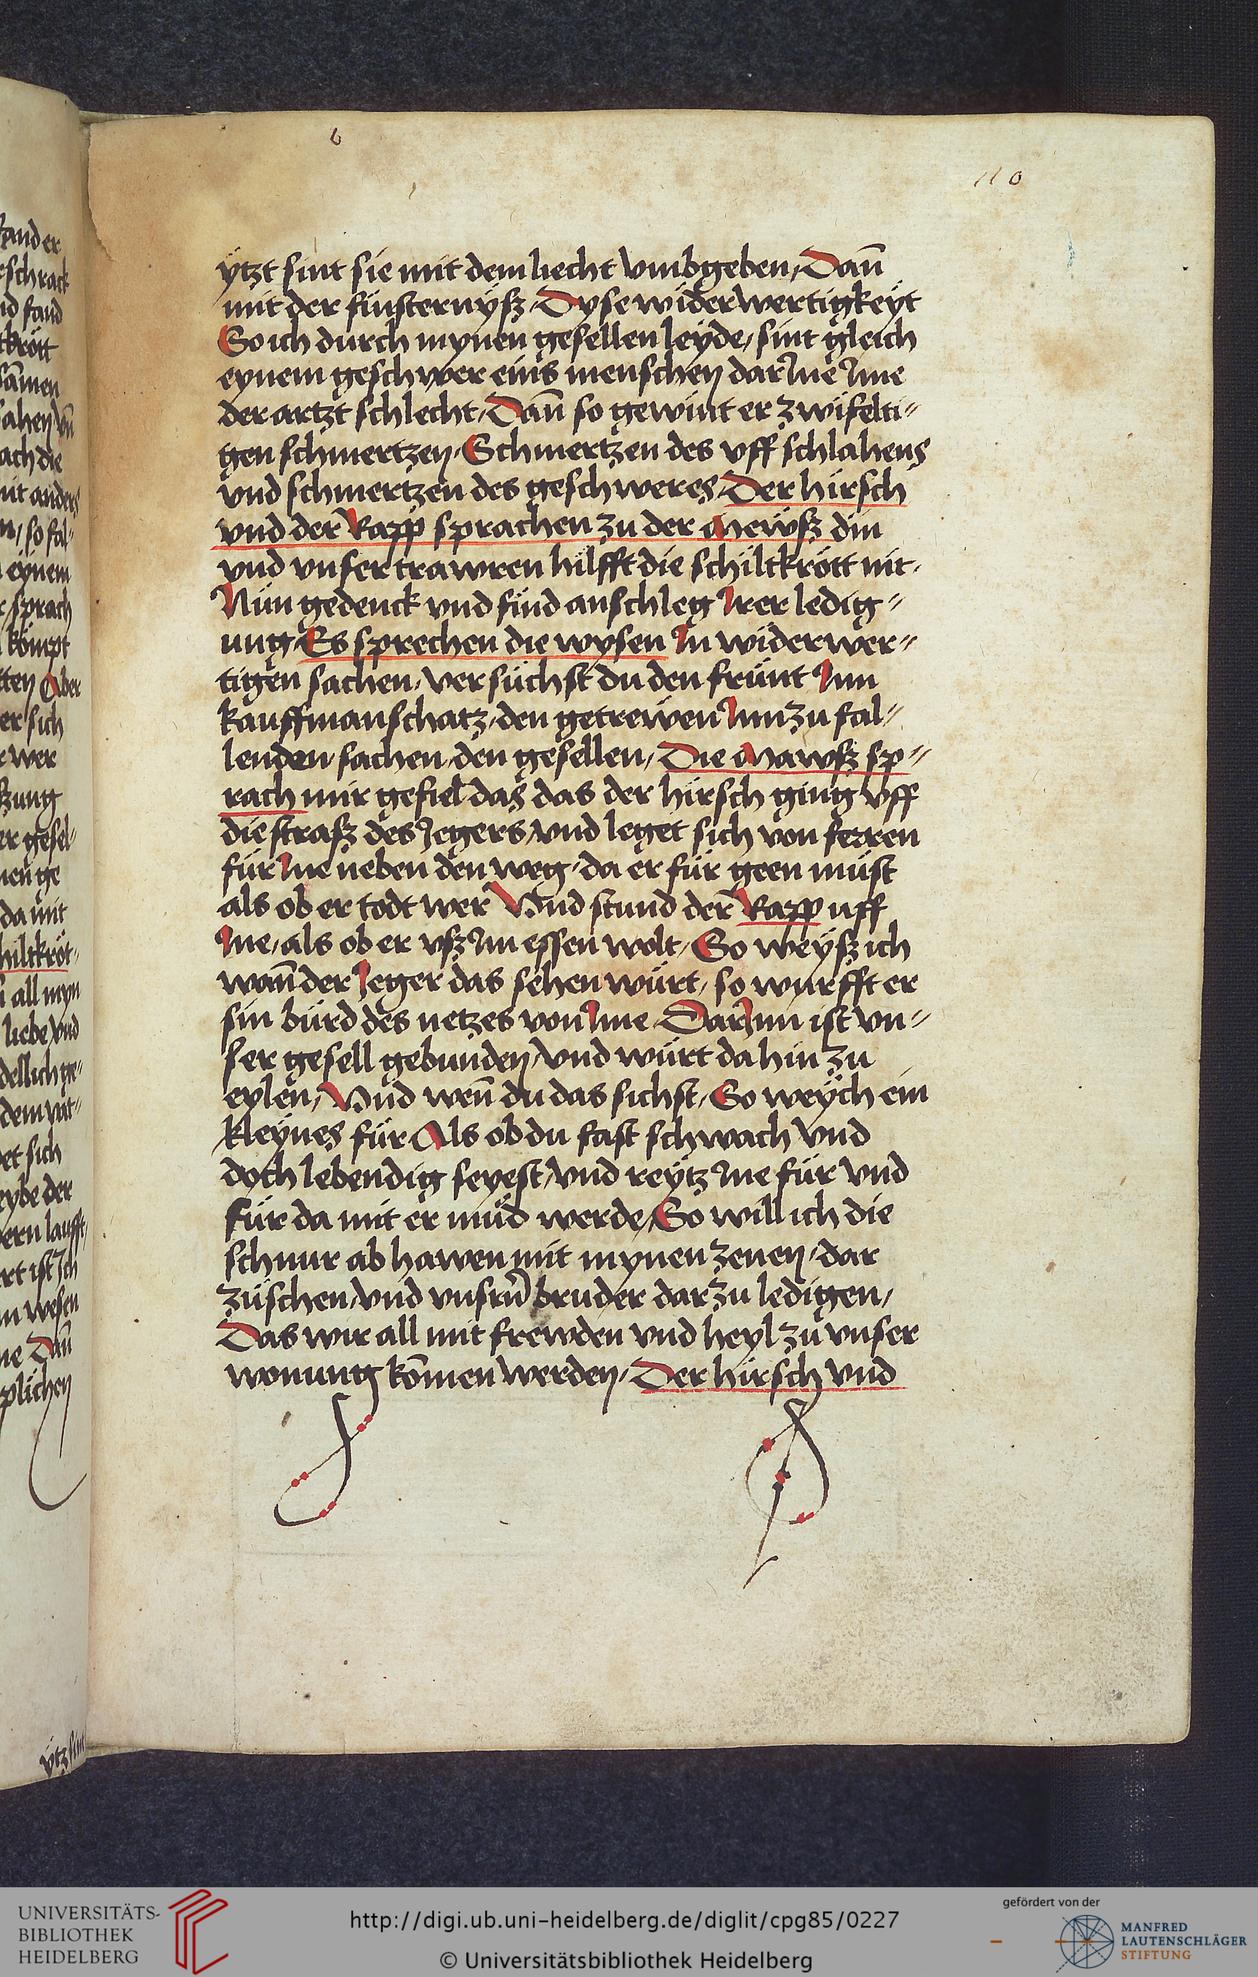 6
110
ytzt sint sie mit dem liecht vmbgeben / Dañ
mit der finsternÿsz / Dyse widerwertigkeÿt
So ich durch mynen gesellen leÿde / sint gleich
eynem geschwer eins menschen dar Jne Jme
der artzt schlecht / Dañ so gewint er zwifelti=
gen schmertzen / Schmertzen des vff schlahens
vnd schmertzen des geschweres / Der hirsch
vnd der Rapp sprachen zu der Mewsz din
vnd vnser trawren hilfft die schiltkrött nit /
Nün gedenck vnd find anschleg Jrer ledig=
ung / Es sprechen die wysen Jn widerwer=
tigen sachen / versüchst du den frünt Jnn
kauffmanschatz / den getrewen Jnn zu fal=
lenden sachen / den gesellen / Die Mawsz sp=
rach mir gefiel das das der hirsch ging vff
die strasz des Jegers / vnd leget sich von ferren
für Jne neben den weg / da er für geen müst
als ob er todt wer Vnd stund der Rapp uff
Jne / als ob er vsz Jm essen wolt / So weÿsz ich
wañ der Jeger das sehen würt / so wurfft er
sin bürd des netzes von Jme / Dar Jnn ist vn=
ser gesell gebunden / vnd würt da hin zu
eylen / Vnd weñ du das sichst / So weÿch ein
kleÿnes für Als ob du fast schwach vnd
doch lebendig seyest / vnd reÿtz Jne für vnd
für da mit er müd werde / So will ich die
schnur ab hawen mit mynen zenen / dar
züschen / vnd vnsrñ bruder dar zu ledigen /
Das wir all mit frewden vnd heyl zu vnser
wonung kom̄en werden / Der hirsch vnd
UNIVERSITÄTS-
BIBLIOTHEK
HEIDELBERG
http://digi.ub.uni-heidelberg.de/diglit/cpg85/0227
© Universitätsbibliothek Heidelberg
gefördert von der
MANFRED
LAUTENSCHLÄGER
STIFTUNG